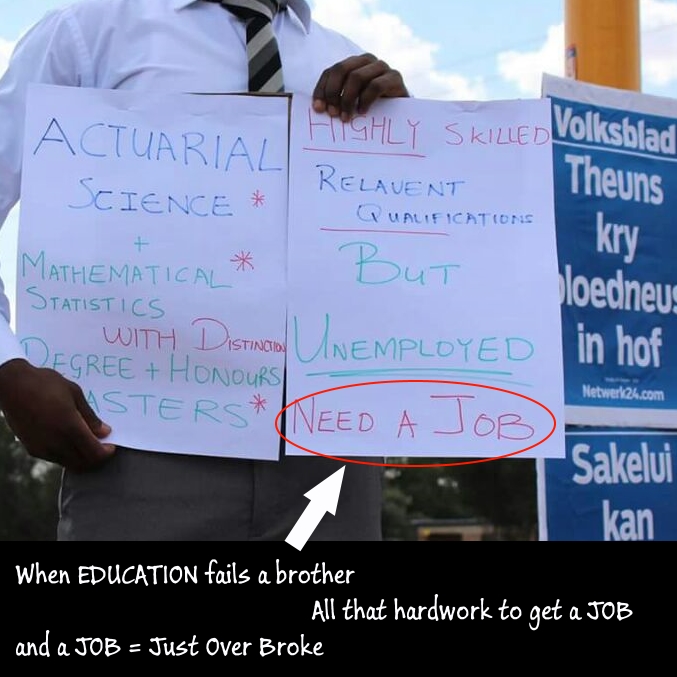 ACTUARIAL
SCIENCE *
+
MATHEMATICAL *
STATISTICS
WITH DISTINCTION
DEGREE + HONOURS
MASTERS *
HIGHLY SKILLED
RELAVENT
QUALIFICATIONS
BUT
UNEMPLOYED
NEED A JOB
Volksblad
Theuns
kry
bloedneus
in hof
Netwerk24.com
Sakelui
kan
When EDUCATION fails a brother
All that hardwork to get a JOB
and a JOB = Just Over Broke